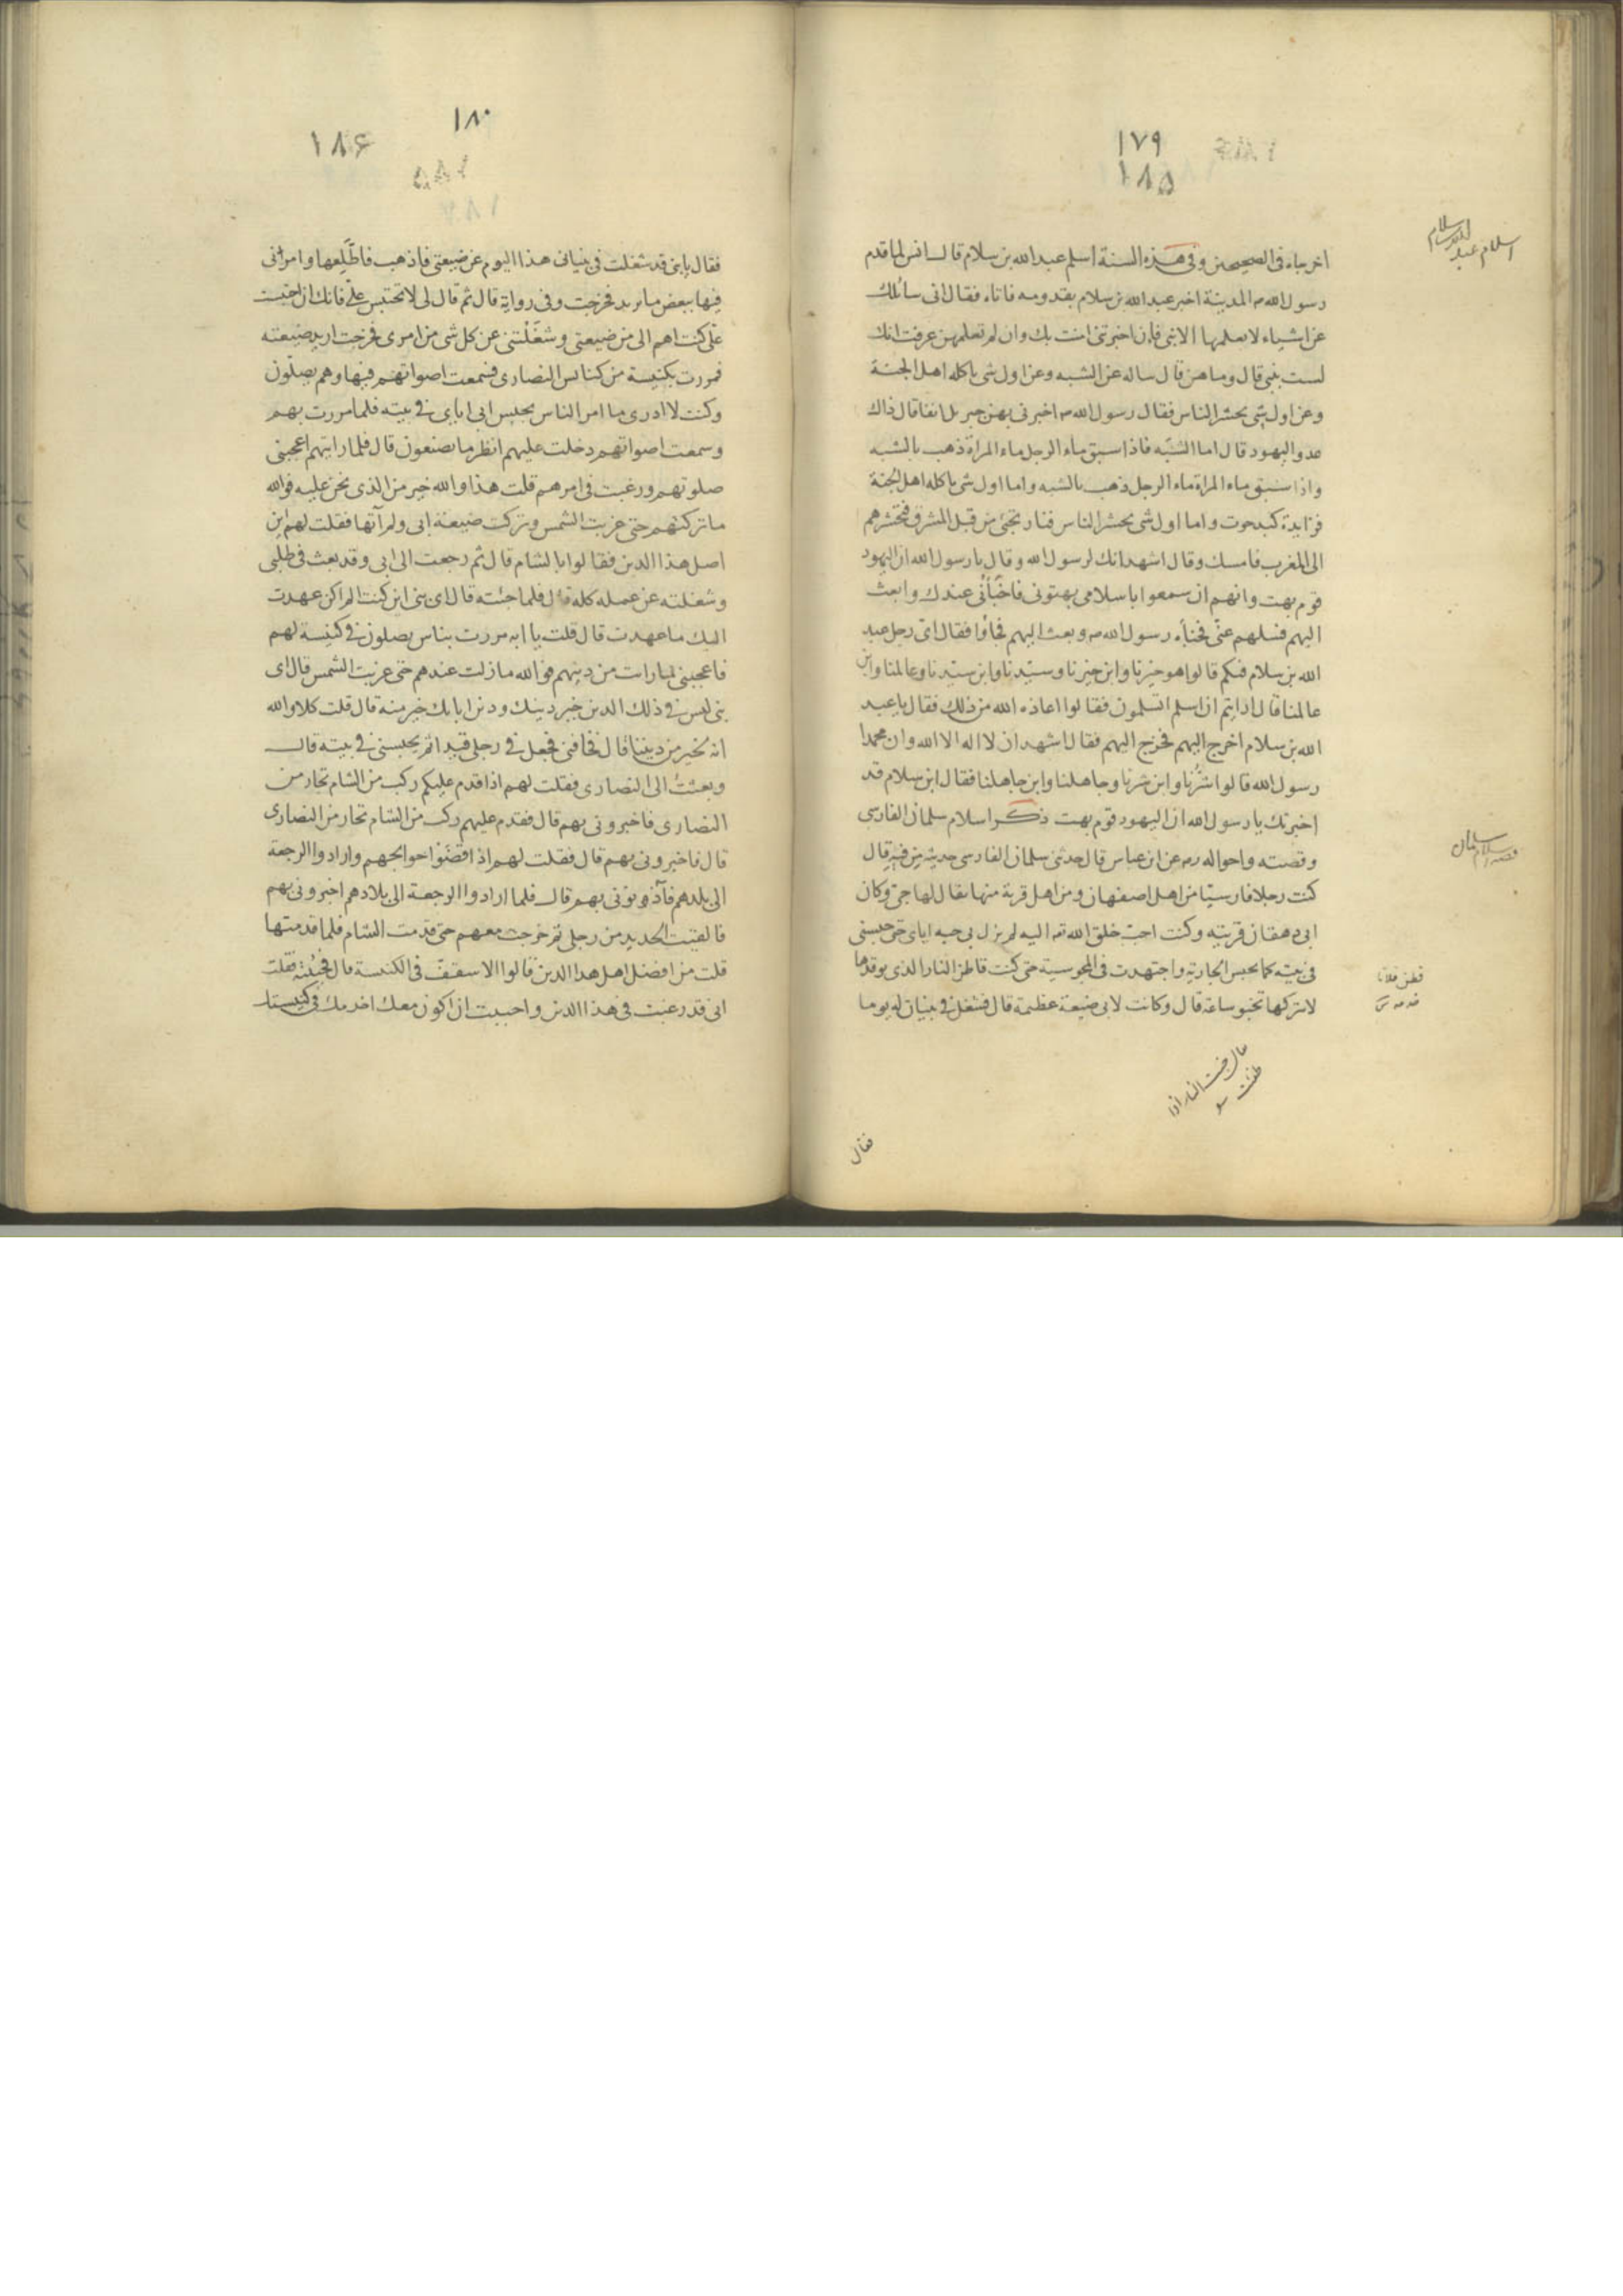 ١٧٩
١٨۵
اخرجاه فى الصحيحين وفى هذه السنة اسلم عبدالله بن سلام قال انس لما قدم
رسول الله ص المدينة اخبر عبدالله بن سلام بقدومه فاتاه فقال انى سائلك
عن اشياء لا يعلمها الا نبى فإن اخبرتنى امنت بك وان لم تعلمهن عرفت انك
لست بنبى قال وما هن قال ساله عن الشبه وعن اول شى ياكله اهل الجنة
وعن اول شى يحشر الناس فقال رسول الله ص اخبرنى بهن جبريل انفا قال ذاك
عدو اليهود قال اما الشبه فاذا سبق ماء الرجل ماء المراة ذهب بالشبه
واذا سبق ماء المراة ماء الرجل ذهب بالشبه واما اول شى ياكله اهل الجنة
فزايدة كبد حوت واما اول شى يحشر الناس فنار تجئ من قبل المشرق فتحشرهم
الى المغرب فامسك وقال اشهد انك لرسول الله وقال يا رسول الله ان اليهود
قوم بهت وانهم ان سمعوا باسلامى بهتونى فاخبأنى عندك وابعث
اليهم فسلهم عنى فخبأه رسول الله ص وبعث اليهم فجاؤا فقال اى رجل عبد
الله بن سلام فيكم قالوا هو خيرنا وابن خيرنا وسيدنا وابن سيدنا وعالمنا وابن
عالمنا قال ارايتم ان اسلم اتسلمون فقالوا اعاذه الله من ذلك فقال يا عبد
الله بن سلام اخرج اليهم فخرج اليهم فقال اشهد ان لا اله الا الله وان محمدا
رسول الله قالوا شرنا وابن شرنا وجاهلنا وابن جاهلنا فقال ابن سلام قد
اخبرتك يا رسول الله ان اليهود قوم بهت ذكر اسلام سلمان الفارسى
وقصته واحواله رض عن ابن عباس قال حدثنى سلمان الفارسى حديثه من فيه قال
كنت رجلا فارسيّا من اهل اصفهان ومن اهل قرية منها يقال لها جى وكان
ابى دهقان قريته وكنت احبّ خلق الله تع اليه لم يزل بى حبه اياى حتى حبسنى
فى بيته كما يحبس الجارية واجتهدت فى المجوسية حتى كنت قاطن النار الذى يوقدها
لا يتركها تخبو ساعة قال وكانت لابى ضيعة عظيمة قال فشغل فى بنيان له يوما
اسلام عبدالله بن سلام
قصه اسلام سلمان
يقال خبت النار اذا
طفئت
فقال
١٨٠
١٨۶
١٨۵
فقال يا بنى قد شغلت فى بنيانى هذا اليوم عن ضيعتى فاذهب فاطّلعها وامرنى
فيها ببعض ما يريد فخرجت وفى رواية قال ثم قال لى لا تحتبس علىّ فانك ان احتبست
علىّ كنت اهم الى من ضيعتى وشغلتنى عن كل شى من امرى فخرجت اريد ضيعته
فمررت بكنيسة من كنائس النصارى فسمعت اصواتهم فيها وهم يصلّون
وكنت لا ادرى ما امر الناس بحبس ابى اياى فى بيته فلما مررت بهم
وسمعت اصواتهم دخلت عليهم انظر ما يصنعون قال فلما رايتهم اعجبنى
صلوتهم ورغبت فى امرهم قلت هذا والله خير من الذى نحن عليه فوالله
ما تركتهم حتى غربت الشمس وتركت ضيعة ابى ولم آتها فقلت لهم اين
اصل هذا الدين فقالوا بالشام قال ثم رجعت الى ابى وقد بعث فى طلبى
وشغلته عن عمله كله قال فلما جئته قال اى بنى اين كنت الم اكن عهدت
اليك ما عهدت قال قلت يا ابه مررت بناس يصلون فى كنيسة لهم
فاعجبنى لما رايت من دينهم فوالله ما زلت عندهم حتى غربت الشمس قال اى
بنى ليس فى ذلك الدين خير دينك ودين ابايك خير منه قال قلت كلا والله
انه لخير من ديننا قال فخافنى فجعل فى رجلى قيدا ثم يحبسنى فى بيته قال
وبعثت الى النصارى فقلت لهم اذا قدم عليكم ركب من الشام تجار من
النصارى فاخبرونى بهم قال فقدم عليهم ركب من الشام تجار من النصارى
قال فاخبرونى بهم قال فقلت لهم اذا قضوا حوايجهم وارادوا الرجعة
الى بلدهم فآذنونى بهم قال فلما ارادوا الرجعة الى بلادهم اخبرونى بهم
فالقيت الحديد من رجلى ثم خرجت معهم حتى قدمت الشام فلما قدمتها
قلت من افضل اهل هذا الدين قالوا الاسقف فى الكنيسة قال فجئته فقلت
انى قد رغبت فى هذا الدين واحببت ان اكون معك اخدمك فى كنيستك